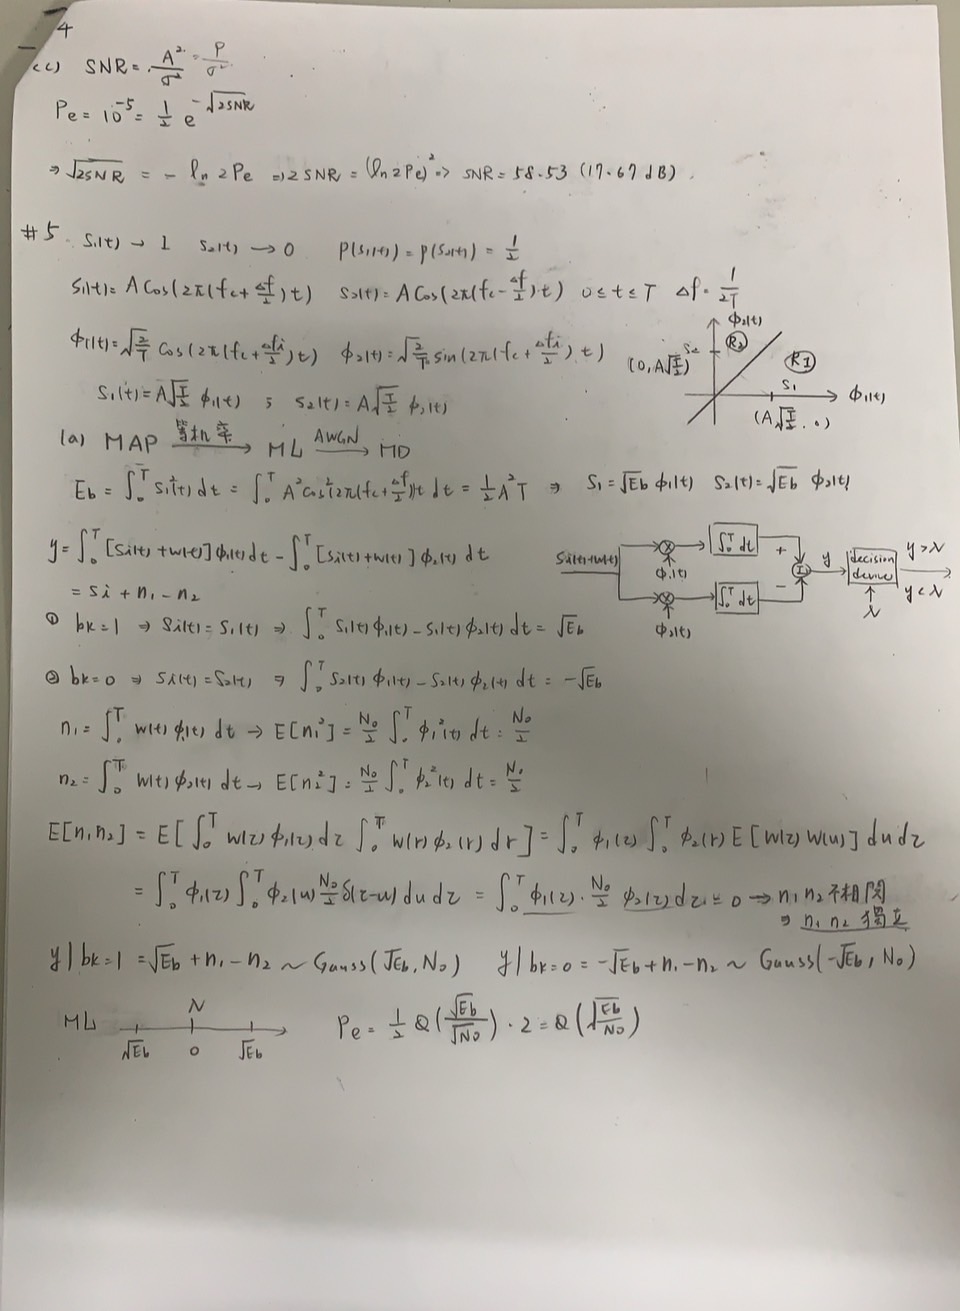 4
(c) SNR = A²/σ² = P/σ²
Pe = 10⁻⁵ = 1/2 e^(-√2SNR)
⇒ √2SNR = - ln 2Pe ⇒ 2 SNR = (ln 2Pe)² ⇒ SNR = 58.53 (17.67 dB)
#5 S₁(t) → 1 S₂(t) → 0 P(S₁(t)) = P(S₂(t)) = 1/2
S₁(t) = A Cos(2π(fc + Δf/2)t) S₂(t) = A Cos(2π(fc - Δf/2)t) 0 ≤ t ≤ T Δf = 1/2T
ϕ₁(t) = √(2/T) Cos(2π(fc + Δfi/2)t) ϕ₂(t) = √(2/T) sin(2π(fc + Δfi/2)t)
S₁(t) = A√(T/2) ϕ₁(t) ; S₂(t) = A√(T/2) ϕ₂(t)
ϕ₂(t)
R₂
(0, A√(T/2)) S₂
R1
S₁
ϕ₁(t)
(A√(T/2), 0)
(a) MAP 等机率 → ML AWGN → MD
Eb = ∫₀ᵀ S₁²(t) dt = ∫₀ᵀ A² Cos²(2π(fc + Δf/2)t dt = 1/2 A²T ⇒ S₁ = √Eb ϕ₁(t) S₂(t) = √Eb ϕ₂(t)
y = ∫₀ᵀ [Si(t) + w(t)] ϕ₁(t) dt - ∫₀ᵀ [Si(t) + w(t)] ϕ₂(t) dt
= Si + n₁ - n₂
Si(t)+w(t)
ϕ₁(t)
∫₀ᵀ dt
+
ϕ₂(t)
∫₀ᵀ dt
-
Σ
y
decision device
λ
y > λ
y < λ
① bk=1 ⇒ Si(t) = S₁(t) ⇒ ∫₀ᵀ S₁(t) ϕ₁(t) - S₁(t) ϕ₂(t) dt = √Eb
② bk=0 ⇒ Si(t) = S₂(t) ⇒ ∫₀ᵀ S₂(t) ϕ₁(t) - S₂(t) ϕ₂(t) dt = -√Eb
n₁ = ∫₀ᵀ w(t) ϕ₁(t) dt → E[n₁²] = N₀/2 ∫₀ᵀ ϕ₁²(t) dt = N₀/2
n₂ = ∫₀ᵀ w(t) ϕ₂(t) dt → E[n₂²] = N₀/2 ∫₀ᵀ ϕ₂²(t) dt = N₀/2
E[n₁n₂] = E[∫₀ᵀ w(z) ϕ₁(z) dz ∫₀ᵀ w(r) ϕ₂(r) dr] = ∫₀ᵀ ϕ₁(z) ∫₀ᵀ ϕ₂(r) E[w(z) w(u)] du dz
= ∫₀ᵀ ϕ₁(z) ∫₀ᵀ ϕ₂(u) N₀/2 δ(z-u) du dz = ∫₀ᵀ ϕ₁(z) · N₀/2 ϕ₂(z) dz = 0 → n₁ n₂ 不相関
⇒ n₁ n₂ 獨立
y | bk=1 = √Eb + n₁ - n₂ ~ Gauss(√Eb, N₀) y | bk=0 = -√Eb + n₁ - n₂ ~ Gauss(-√Eb, N₀)
ML
λ
√Eb 0 √Eb
Pe = 1/2 Q(√Eb/√N₀) · 2 = Q(√(Eb/N₀))